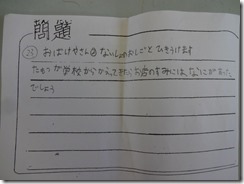 問題
㉓ おばけやさん④ ないしょのおしごと ひきうけます
たもつが学校からかえってきたらお店のすみには、なにがあった
でしょう